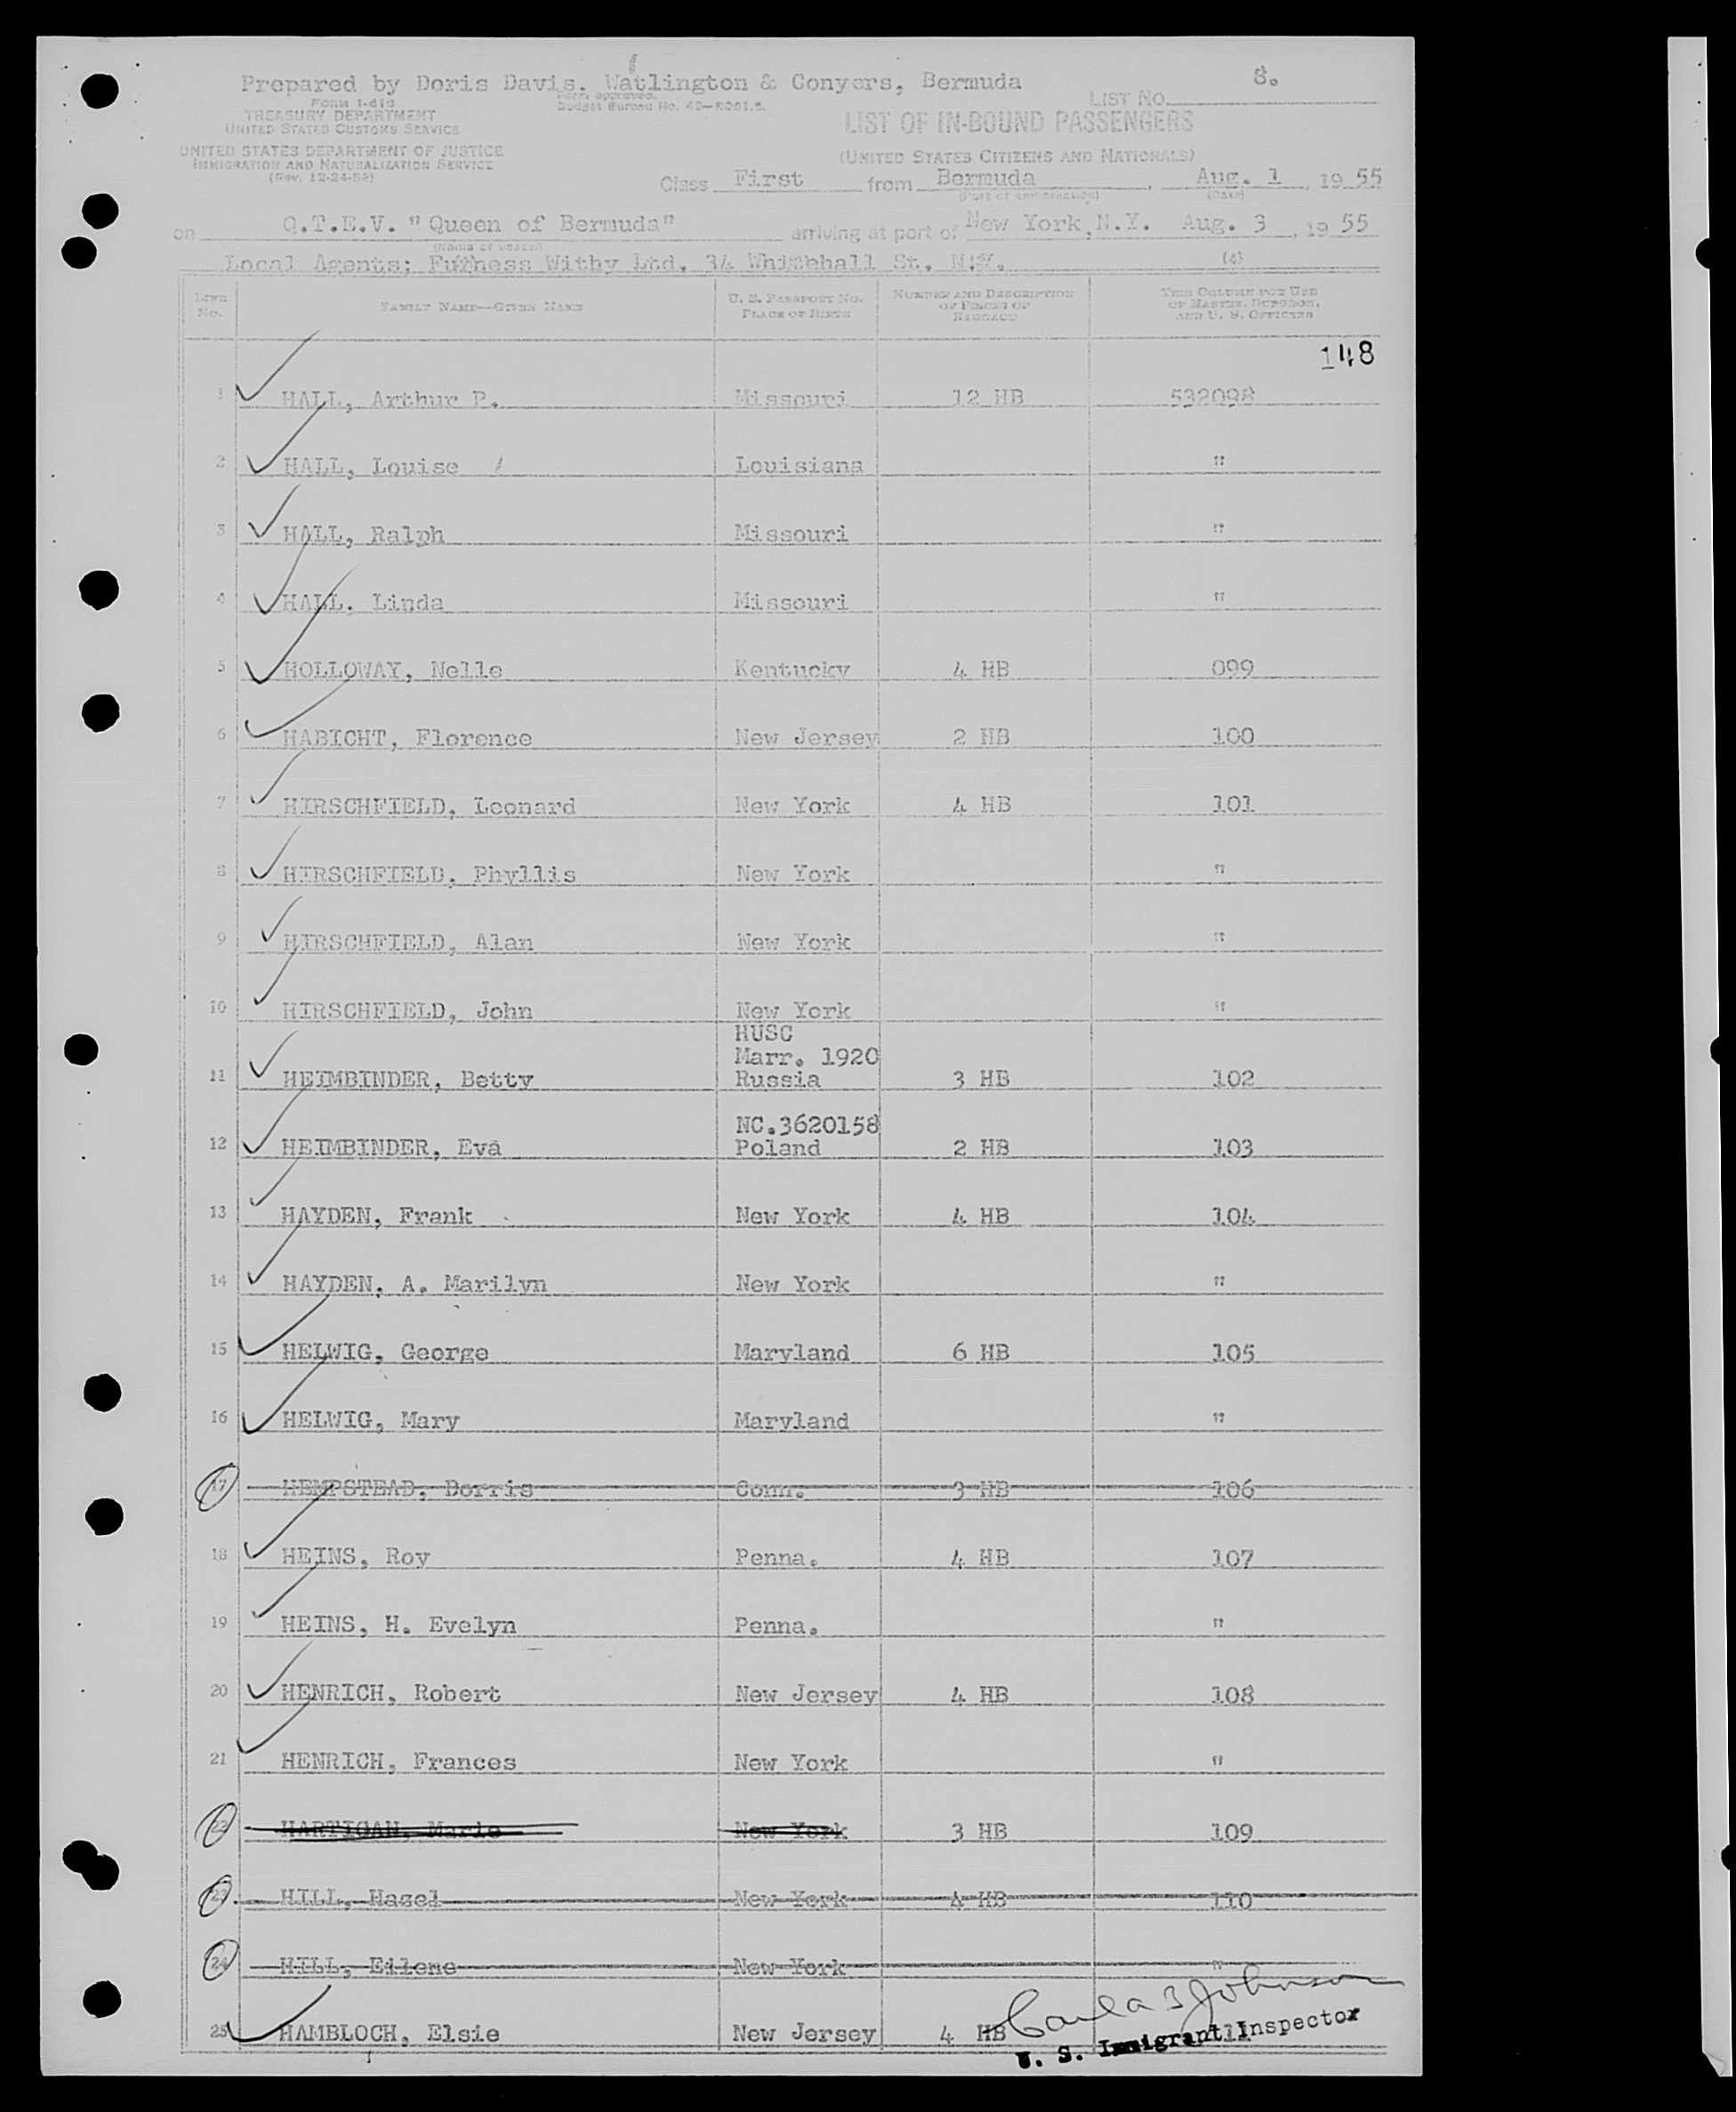 Prepared by Doris Davis. Watlington & Conyers, Bermuda
8.
LIST NO.
Form I-418
TREASURY DEPARTMENT
UNITED STATES CUSTOMS SERVICE
Form approved.
Budget Bureau No. 43-R061.5
LIST OF IN-BOUND PASSENGERS
UNITED STATES DEPARTMENT OF JUSTICE
IMMIGRATION AND NATURALIZATION SERVICE
(Rev. 12-24-52)
(UNITED STATES CITIZENS AND NATIONALS)
Class First from Bermuda, Aug. 1, 19 55
(Port of embarkation) (Date)
on Q.T.E.V. "Queen of Bermuda" arriving at port of New York, N.Y. Aug. 3, 19 55
(Name of vessel)
Local Agents; Furness Withy Ltd. 34 Whitehall St. N.Y.
(4)
LINE No. FAMILY NAME—GIVEN NAME U. S. PASSPORT NO. PLACE OF BIRTH NUMBER AND DESCRIPTION OF PIECES OF BAGGAGE THIS COLUMN FOR USE OF MASTER, SURGEON, AND U. S. OFFICERS
148
1 HALL, Arthur P. Missouri 12 HB 532098
2 HALL, Louise Louisiana "
3 HALL, Ralph Missouri "
4 HALL. Linda Missouri "
5 HOLLOWAY, Nelle Kentucky 4 HB 099
6 HABICHT, Florence New Jersey 2 HB 100
7 HIRSCHFIELD, Leonard New York 4 HB 101
8 HIRSCHFIELD. Phyllis New York "
9 HIRSCHFIELD, Alan New York "
10 HIRSCHFIELD, John New York "
HUSC
Marr. 1920
11 HEIMBINDER, Betty Russia 3 HB 102
NC.3620158
12 HEIMBINDER, Eva Poland 2 HB 103
13 HAYDEN, Frank New York 4 HB 104
14 HAYDEN, A. Marilyn New York "
15 HELWIG, George Maryland 6 HB 105
16 HELWIG, Mary Maryland "
17 HEMPSTEAD, Dorris Conn. 3 HB 106
18 HEINS, Roy Penna. 4 HB 107
19 HEINS, H. Evelyn Penna. "
20 HENRICH, Robert New Jersey 4 HB 108
21 HENRICH, Frances New York "
22 HARTIGAN, Marie New York 3 HB 109
23 HILL, Hazel New York 4 HB 110
24 HILL, Eilene New York "
25 HAMBLOCH, Elsie New Jersey 4 HB
Johnson
U. S. Immigrant Inspector